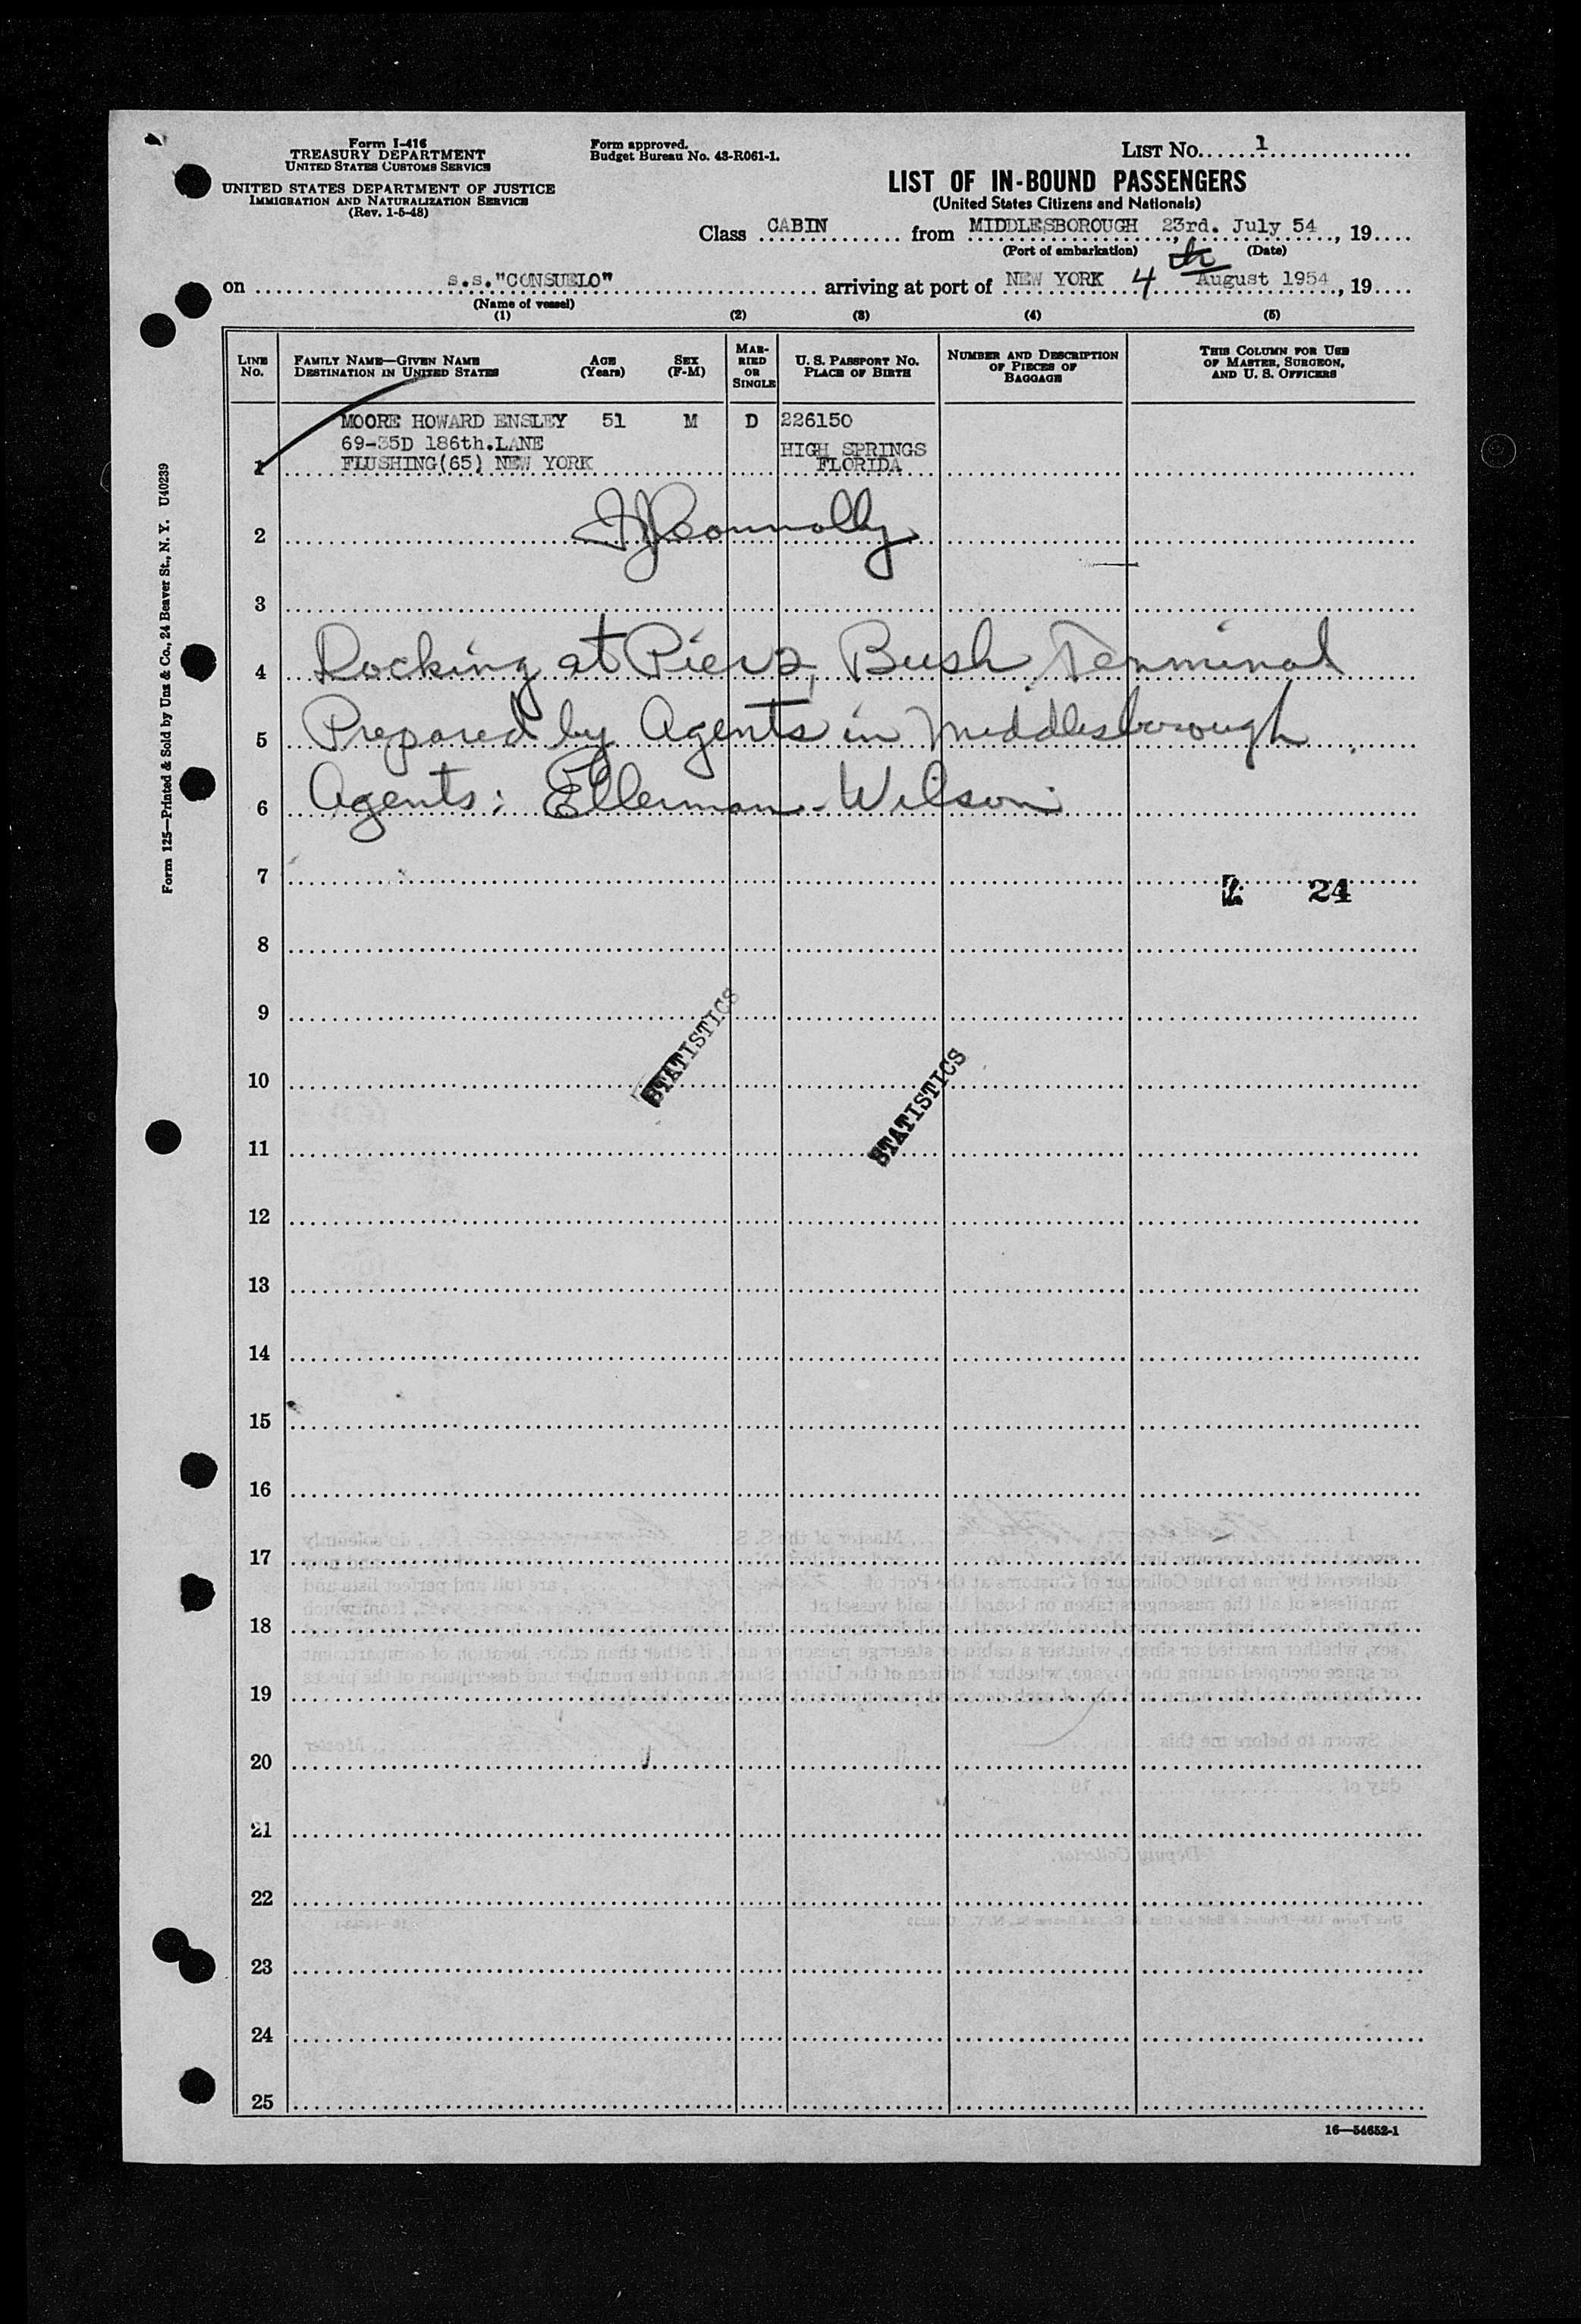 Form I-416
TREASURY DEPARTMENT
UNITED STATES CUSTOMS SERVICE
UNITED STATES DEPARTMENT OF JUSTICE
IMMIGRATION AND NATURALIZATION SERVICE
(Rev. 1-5-48)
Form approved.
Budget Bureau No. 43-R061-1.
LIST No. 1
LIST OF IN-BOUND PASSENGERS
(United States Citizens and Nationals)
Class CABIN from MIDDLESBOROUGH 23rd. July 54, 19
(Port of embarkation) (Date)
on s.s."CONSUELO" arriving at port of NEW YORK 4 th August 1954, 19
(Name of vessel)
(1) (2) (3) (4) (5)
LINE No.
FAMILY NAME—GIVEN NAME
DESTINATION IN UNITED STATES
AGE (Years)
SEX (F-M)
MARRIED OR SINGLE
U. S. PASSPORT No.
PLACE OF BIRTH
NUMBER AND DESCRIPTION OF PIECES OF BAGGAGE
THIS COLUMN FOR USE OF MASTER, SURGEON, AND U. S. OFFICERS
MOORE HOWARD ENSLEY 51 M D 226150
69-35D 186th.LANE HIGH SPRINGS
1 FLUSHING(65) NEW YORK FLORIDA
2 Connolly
3
4 Docking at Pier 2, Bush Terminal
5 Prepared by Agents in Middlesborough
6 Agents: Ellerman-Wilson
7
24
8
9
STATISTICS
10
STATISTICS
11
12
13
14
15
16
17
18
19
20
21
22
23
24
25
16—54652-1
Form 125—Printed & Sold by Unz & Co., 24 Beaver St., N. Y. U40239